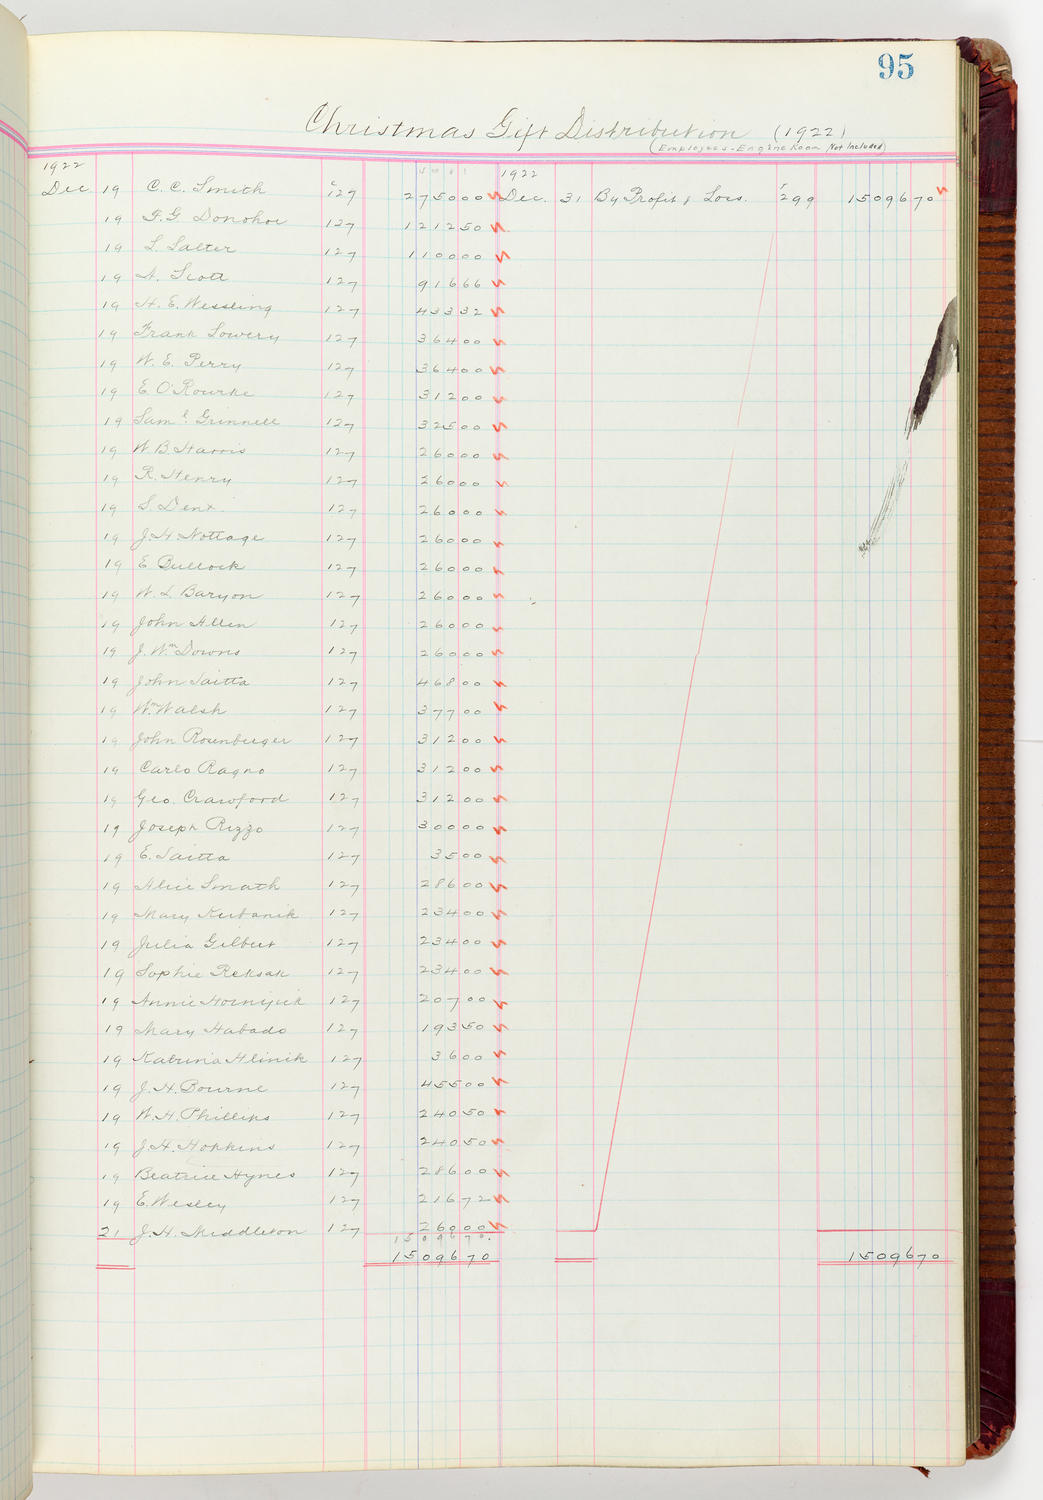 95
Christmas Gift Distribution (1922)
(Employees - Engine Room Not Included)
1922 1922
Dec. 19 C. C. Smith C127 275000 Dec. 31 By Profit & Loss. C299 1509670
19 F. G. Donohoe 127 121250
19 L. Salter 127 110000
19 A. Scott 127 91666
19 H. E. Wessling 127 43332
19 Frank Lowery 127 36400
19 W. E. Perry 127 36400
19 E. O'Rourke 127 31200
19 Saml. Grinnell 127 32500
19 W. B. Harris 127 26000
19 R. Henry 127 26000
19 S. Dent. 127 26000
19 J. H. Nottage 127 26000
19 E. Bullock 127 26000
19 W. L. Baryon 127 26000
19 John Allen 127 26000
19 J. Wm. Downs 127 26000
19 John Saitta 127 46800
19 Wm. Walsh 127 37700
19 John Rosenberger 127 31200
19 Carlo Ragno 127 31200
19 Geo. Crawford 127 31200
19 Joseph Rizzo 127 30000
19 E. Saitta 127 3500
19 Alice Smath 127 28600
19 Mary Kubanik 127 23400
19 Julia Gilbert 127 23400
19 Sophie Reksak 127 23400
19 Annie 127 20700
19 Mary Habado 127 19350
19 Katrina Hlinik 127 3600
19 J. H. Bourne 127 45500
19 W. H. Phillips 127 24050
19 J. H. Hopkins 127 24050
19 Beatrice Hynes 127 28600
19 E. Wesley 127 21672
21 J. H. Middleton 127 26000
1509670.
1509670 1509670